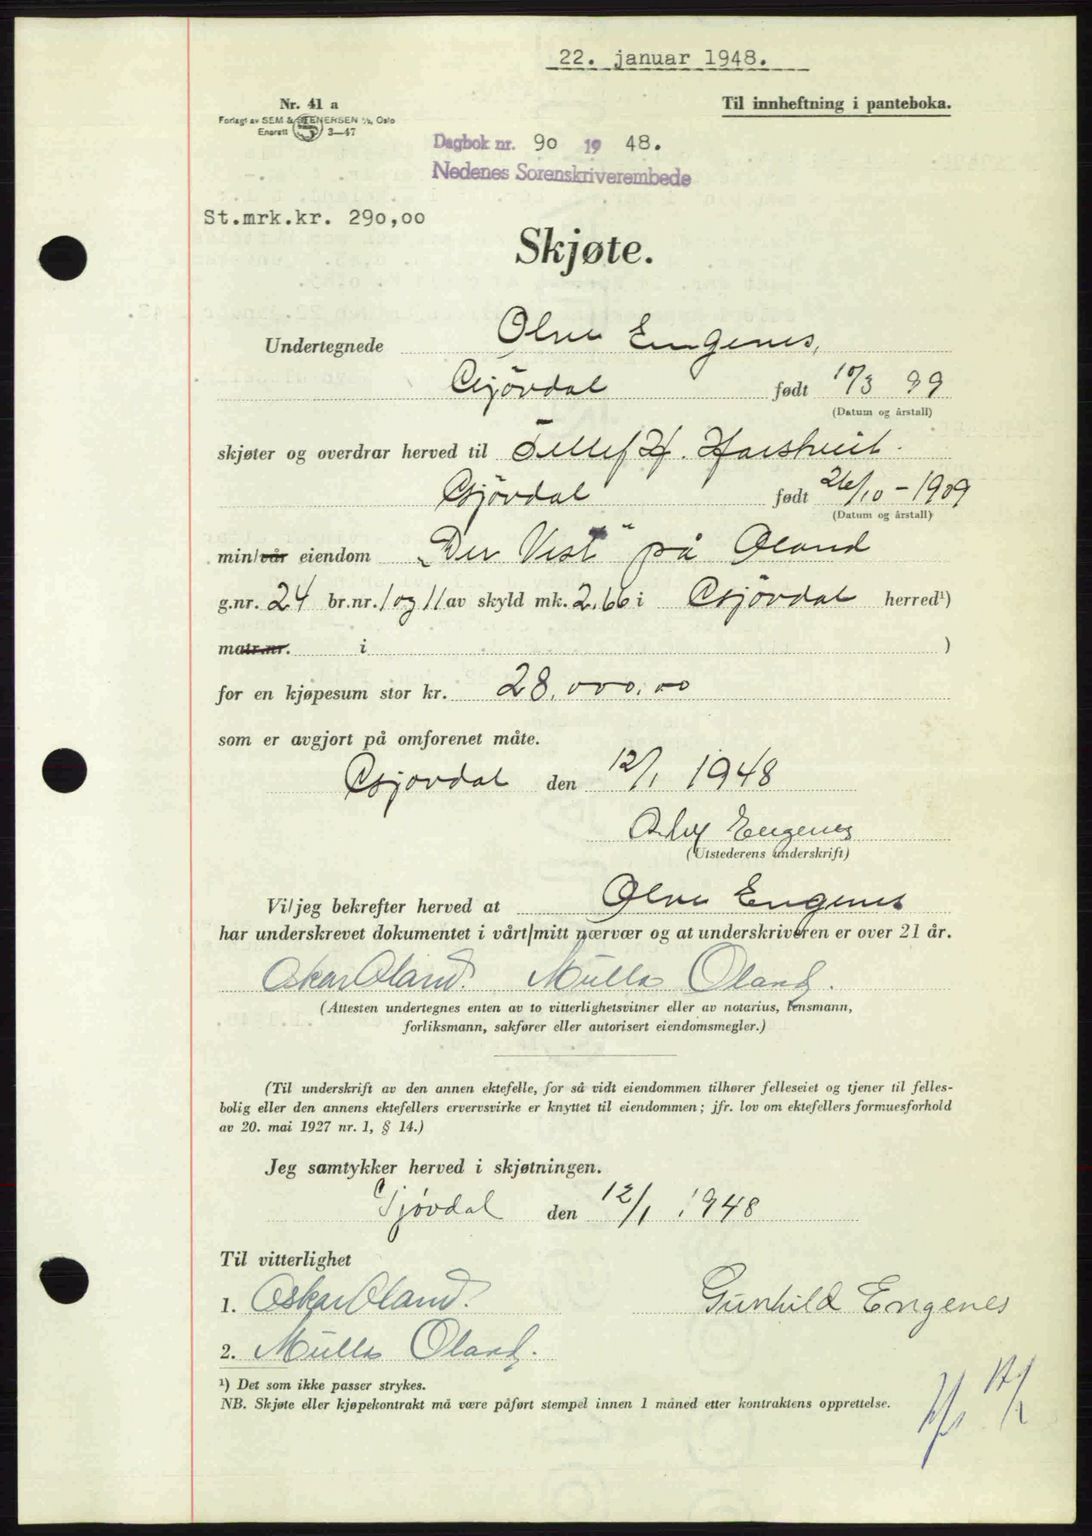 22. januar 1948.
Nr. 41 a
Til innheftning i panteboka.
Forlagt av SEM & STENERSEN A/S, Oslo
Enerett 3—47
Dagbok nr. 90 19 48.
Nedenes Sorenskriverembede
St.mrk.kr. 290,00
Skjøte.
Undertegnede Olve Engenes,
Gjövdal født 10/3 99
(Datum og årstall)
skjøter og overdrar herved til Tellef H. Harstveit.
Gjövdal født 26/10 - 1909
(Datum og årstall)
min/vår eiendom „Der Vest" på Öland
g.nr. 24 br.nr. 1 og 11 av skyld mk. 2,66 i Gjövdal herred¹)
matr.nr. i )
for en kjøpesum stor kr. 28.000,00
som er avgjort på omforenet måte.
Gjövdal den 12/1 1948
Olve Engenes
(Utstederens underskrift)
Vi/jeg bekrefter herved at Olve Engenes
har underskrevet dokumentet i vårt/mitt nærvær og at underskriveren er over 21 år.
Oskar Öland. Mulla Öland.
(Attesten undertegnes enten av to vitterlighetsvitner eller av notarius, lensmann,
forliksmann, sakfører eller autorisert eiendomsmegler.)
(Til underskrift av den annen ektefelle, for så vidt eiendommen tilhører felleseiet og tjener til felles-
bolig eller den annens ektefellers ervervsvirke er knyttet til eiendommen; jfr. lov om ektefellers formuesforhold
av 20. mai 1927 nr. 1, § 14.)
Jeg samtykker herved i skjøtningen.
Gjövdal den 12/1 1948
Til vitterlighet
1. Oskar Öland. Gunhild Engenes
2. Mulla Öland.
¹) Det som ikke passer strykes.
NB. Skjøte eller kjøpekontrakt må være påført stempel innen 1 måned etter kontraktens opprettelse.